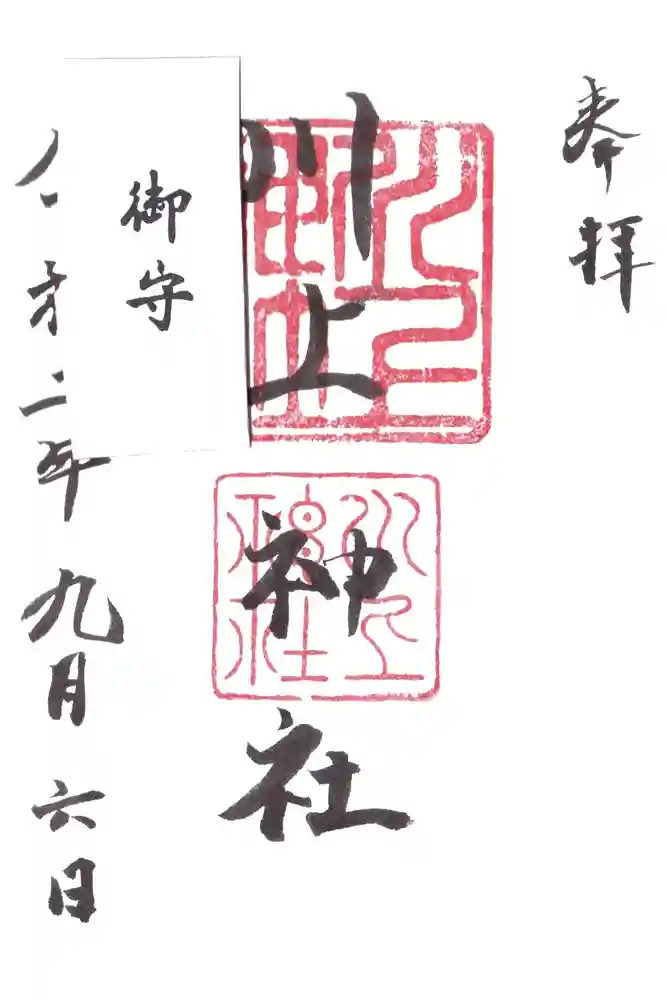 奉拝
川上神社
御守
二年九月六日